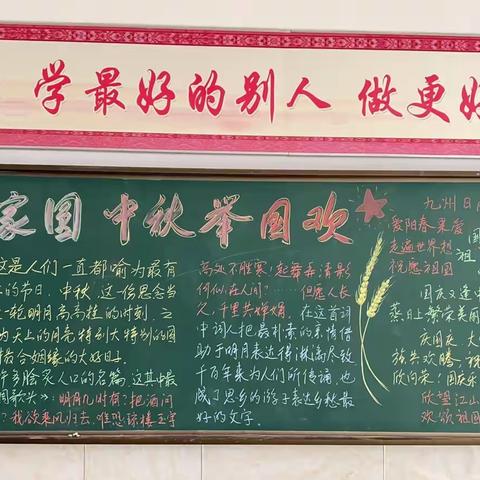 学最好的别人 做更好
家国 中秋举国欢
这是人们一直都喻为最有
的节日，中秋，这一倍思念当
一轮明月高高挂的时刻，三
为天上的月亮特别大特别的圆
符合姻缘的大好日子。
许多脍炙人口的名篇，这其中最
调歌头》：明月几时有？把酒问
？我欲乘风归去，唯恐琼楼玉宇
高处不胜寒，起舞弄清影
何似在人间？……但愿人长
久，千里共婵娟，在这首词
中词人把最朴素的亲情借
助于明月表达得淋漓尽致
千百年来为人们所传诵，也
成了思乡的游子表达乡愁最
好的文字。
九州日月
爱阳春
走遍世界想
祝愿祖国
国
祖
国庆又逢中
蒸日上繁荣美丽
庆国庆，大
强共欢腾，祝
欣向荣！国庆乐
欣望江山
欢颂祖国